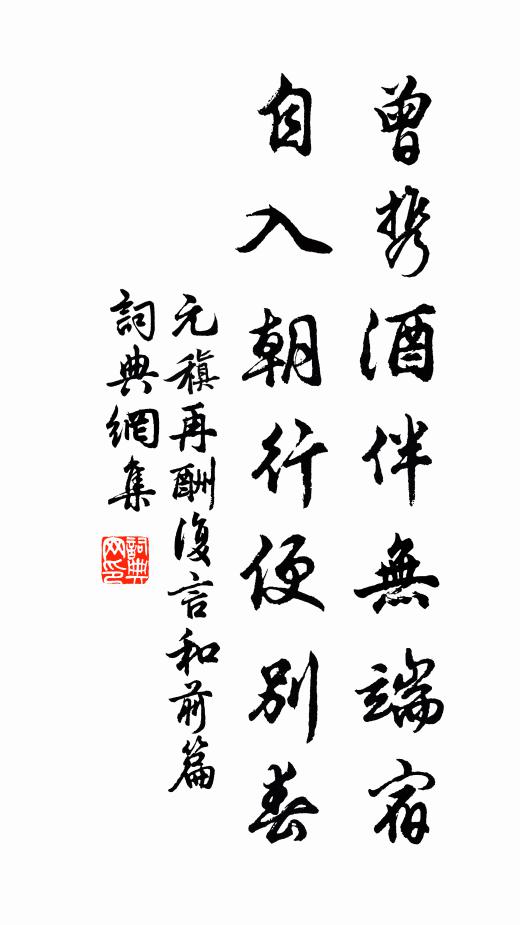 曾携酒伴無端宿
自入朝行便別春
元稹再酬復言和前篇
詞典網集
詞典網印